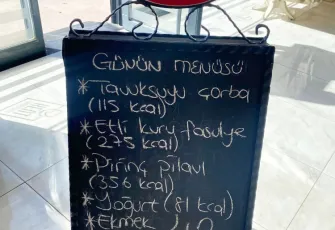 GÜNÜN MENÜSÜ
*Tavuksuyu çorba
(115 kcal)
*Etli kuru fasulye
(275 kcal)
*Pirinç pilavı
(356 kcal)
*Yoğurt (81 kcal)
*Ekmek